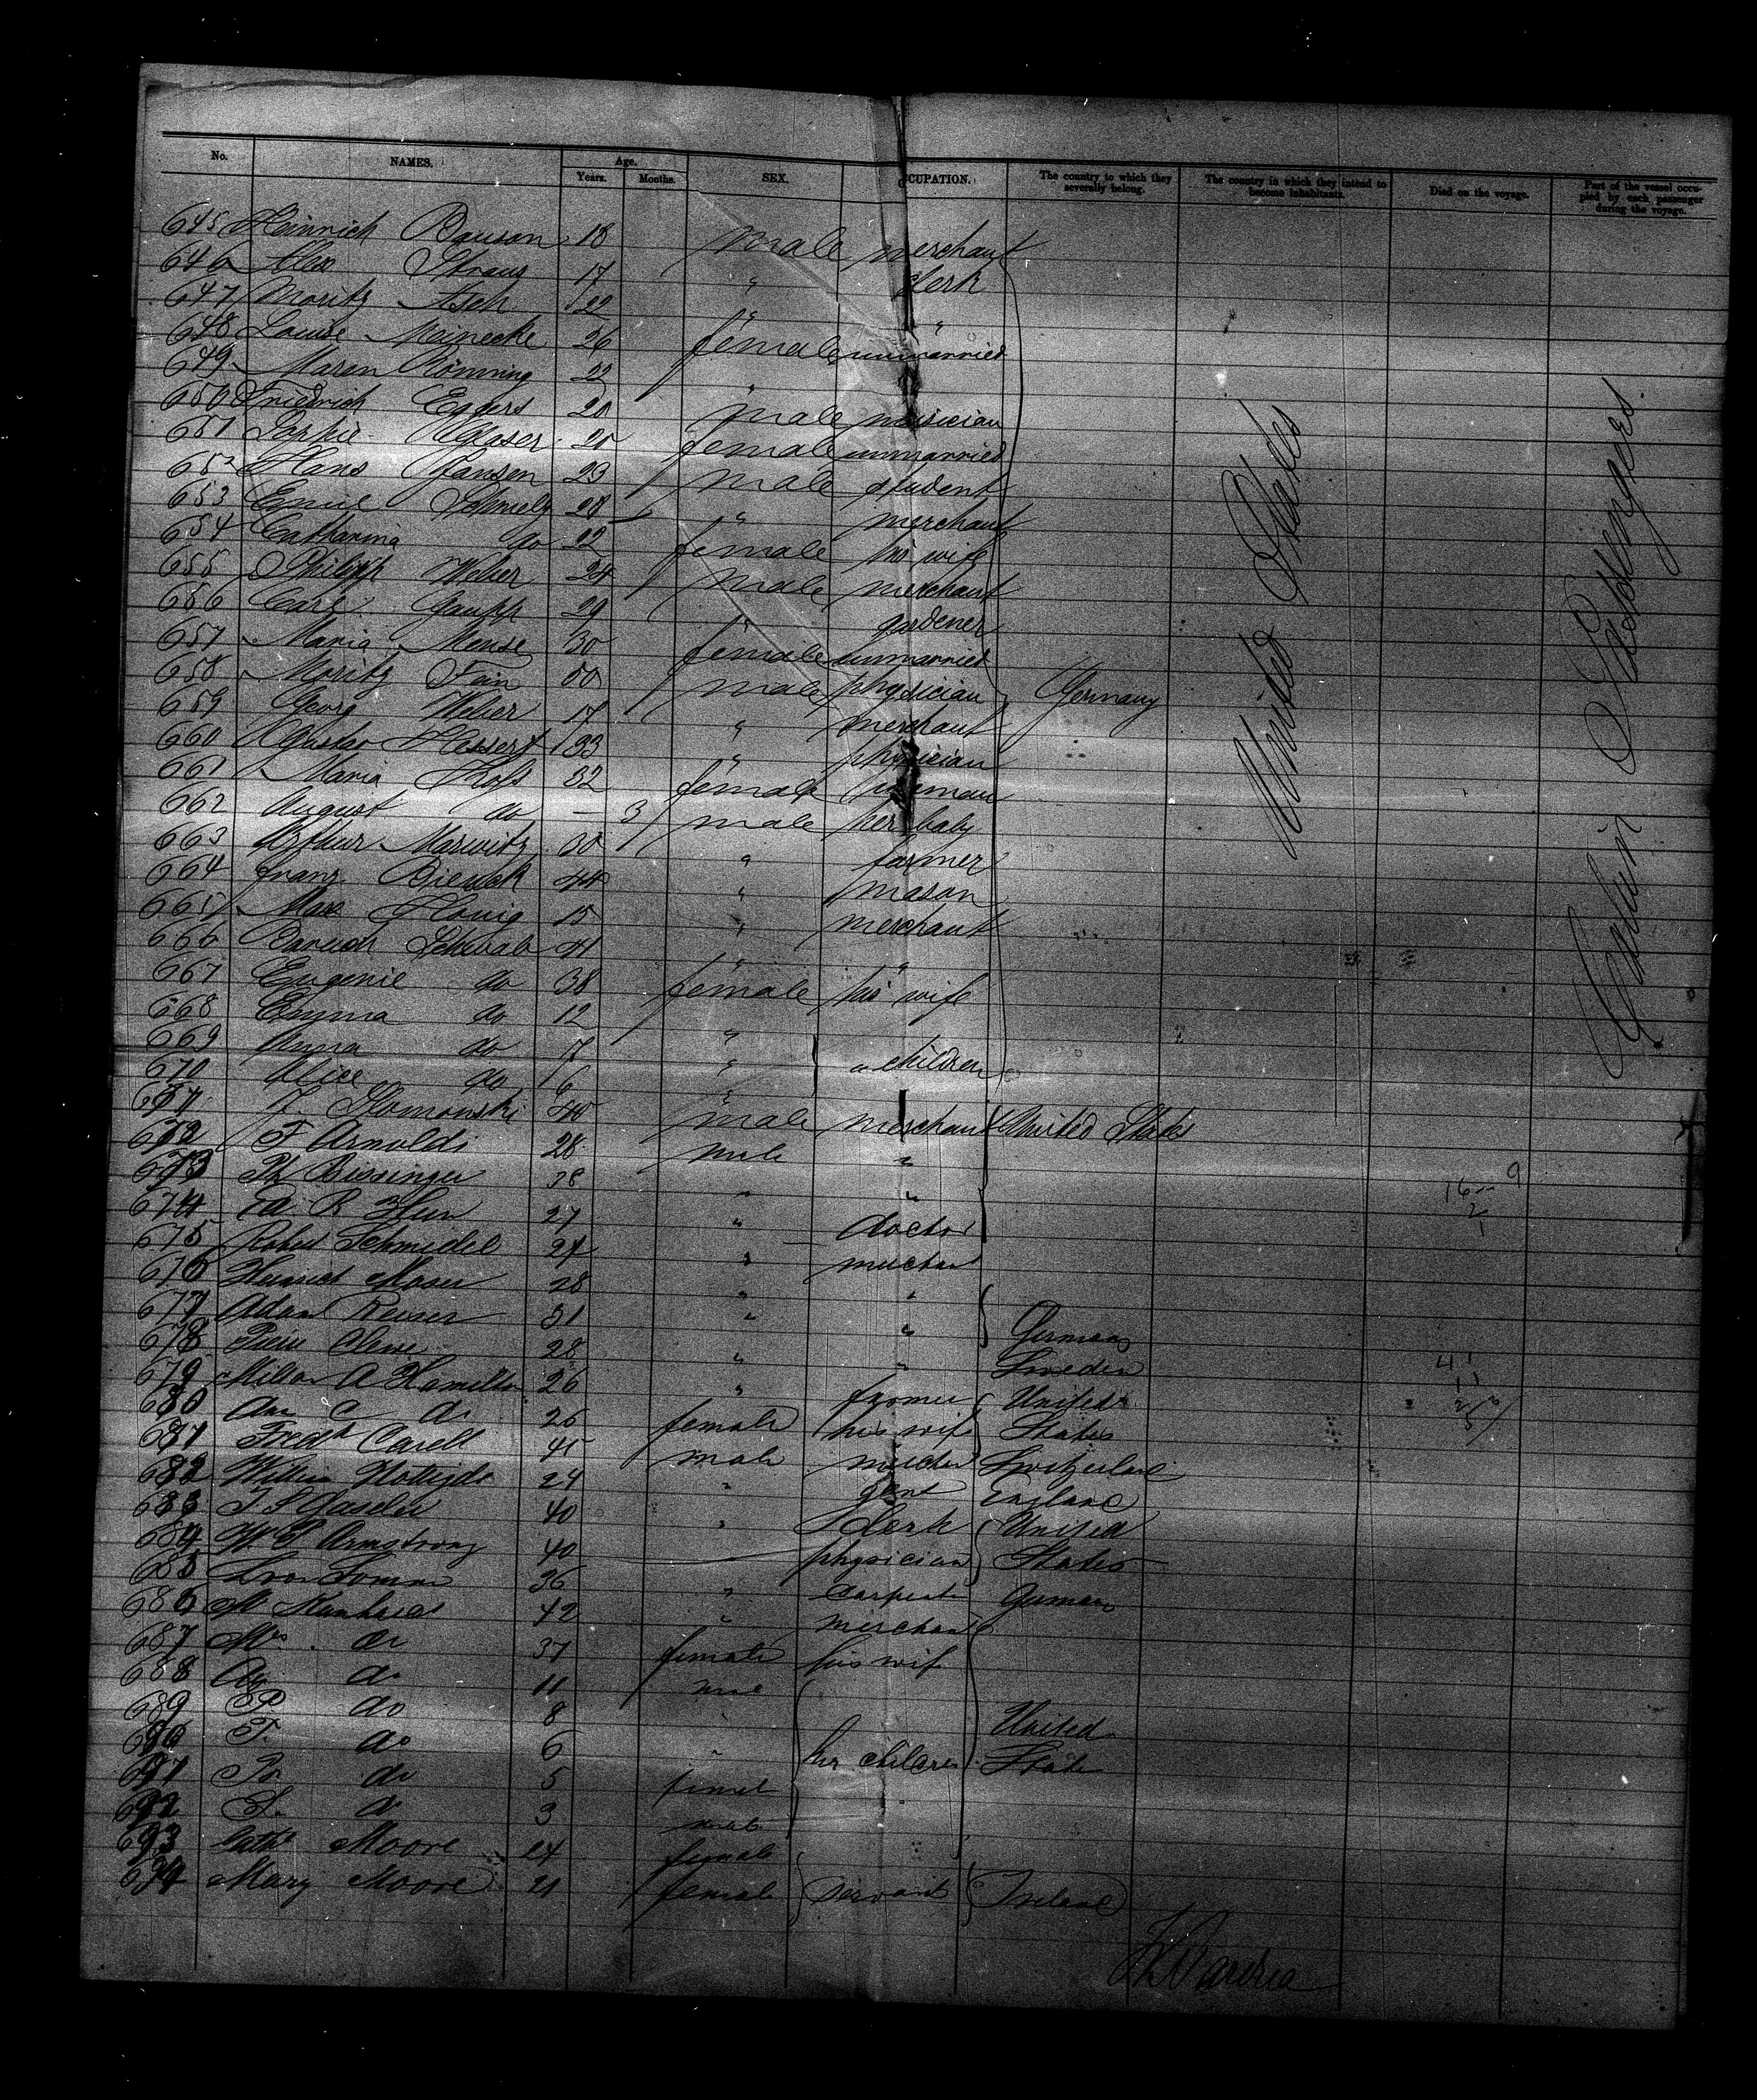 No. NAMES. Age. Years. Months. SEX. OCCUPATION. The country to which they severally belong. The country in which they intend to become inhabitants. Died on the voyage. Part of the vessel occupied by each passenger during the voyage.
645 Heinrich Bauson 18 male merchant
646 Alex Straus 17 " clerk
647 Moritz Asch 22 " "
648 Louise Meinecke 26 female unmarried
649 Maron Rönning 22 "
650 Friedrich Eggers 20 male musician
651 Sophie Glaser 20 female unmarried
652 Hans Jansen 23 male student
653 Emil Schmelz 28 " merchant
654 Catharina do 22 female his wife
655 Philipp Weber 24 male merchant
656 Carl Gaupp 29 " gardener
657 Maria Mense 30 female unmarried
658 Moritz Fain 50 male physician Germany
659 Georg Weber 17 " merchant
660 Gustav Hessert 33 " physician
661 Maria 32 female
662 August do - 3 male her baby
663 Arthur Marwitz 30 " farmer
664 Franz 44 " mason
665 Max Honig 15 " merchant
666 Baruch Schwab 41 " "
667 Eugenie do 38 female his wife
668 Emma do 12 "
669 Anna do 7 " children
670 Alice do 6 "
671 male merchant United States
672 F Arnoldi 28 male "
673 Ph Bissinger 38 " "
674 27 " doctor
675 Robert Schmidel 24 " merchant
676 Heinrich Moser 28 " "
677 Adam Reiser 31 " " Germany
678 Cleve 28 " " Sweden
679 Milton A Hamilton 26 " farmer United
680 Ann C do 26 female his wife States
681 Fredk Carell 45 male merchant Switzerland
682 William 24 " gent England
683 40 " Clerk United
684 W. P. Armstrong 40 physician States
685 36 " carpenter Germany
686 M 42 " merchant
687 Mrs. do 37 female his wife
688 do 11 male
689 P do 8 " United
690 T. do 6 " her children States
691 do 5 female
692 do 3 male
693 Cathe Moore 24 female
694 Mary Moore 21 female servant Ireland
United States
Cabin Passengers